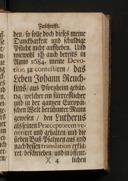 Zuschrifft.
den / so solle doch dieses meine
Danckbarkeit und schuldige
Pflicht nicht aufheben. Und
wiewohl ich auch bereits in
Anno 1684. meine Devo-
tion zu contestiren / das
Leben Johann Reuch-
lins / aus Pfortzheim gebür-
tig / welcher ein fürtrefflicher
und in der gantzen Europæi-
schen Welt berühmter Mann
gewesen / den Lutherus
als seinen Præceptorem ve-
nerirt und gehalten und der
sieben Buß-Psalmen aus und
nach dessen translation erklä-
ret
X 4